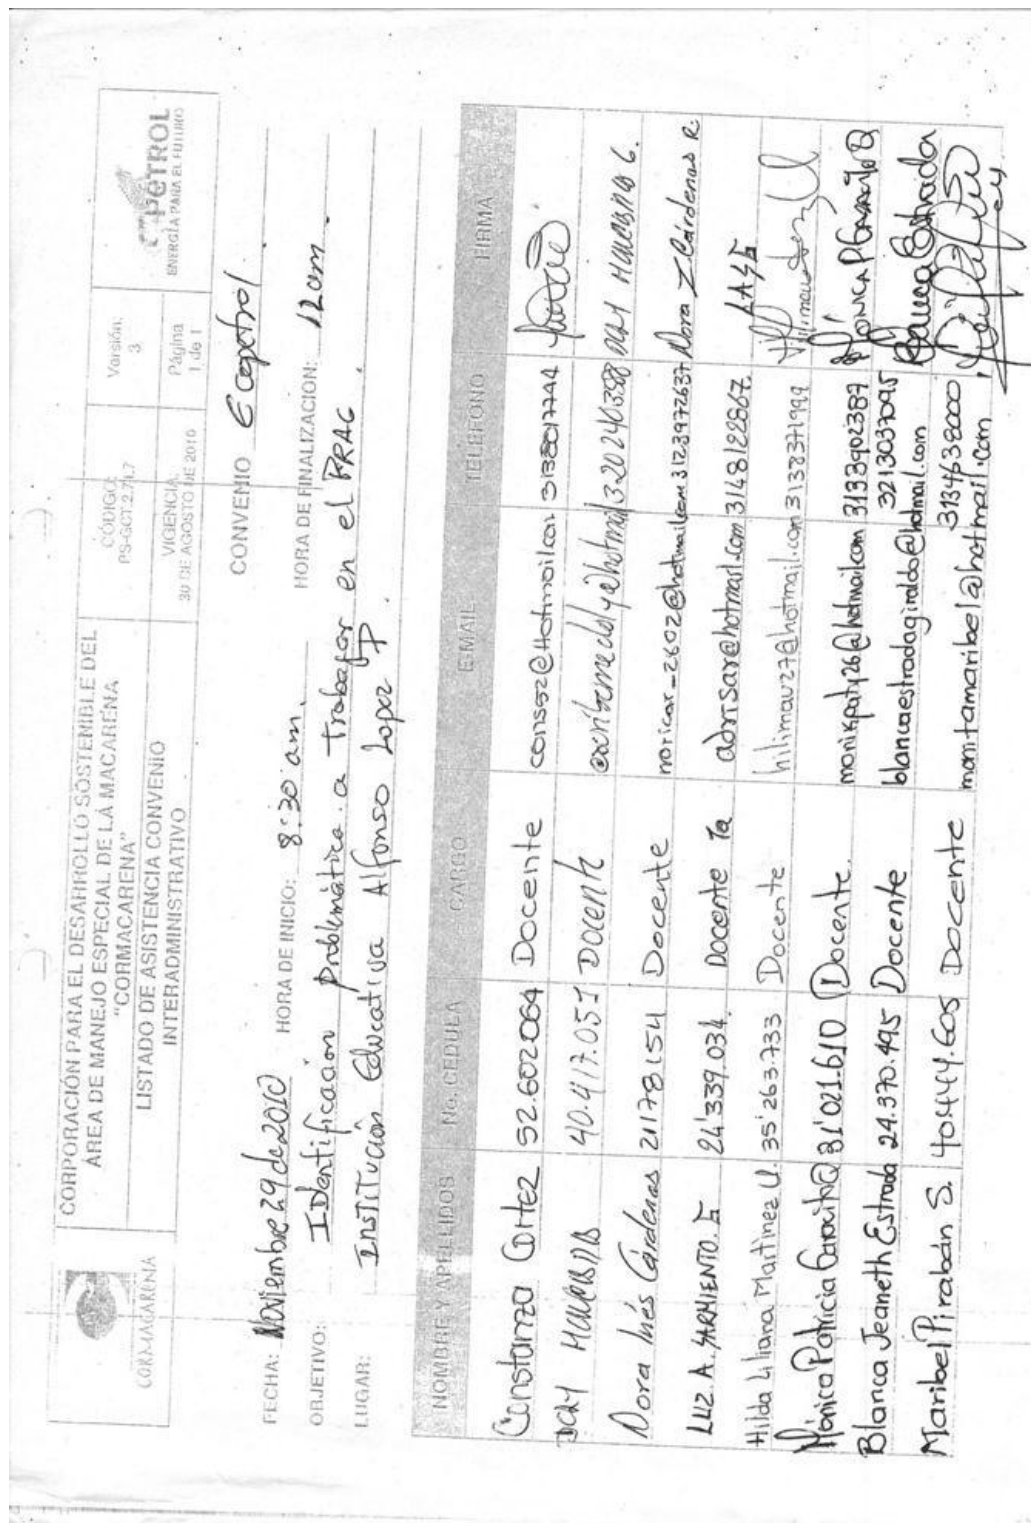 CORMACARENA
CORPORACIÓN PARA EL DESARROLLO SOSTENIBLE DEL
ÁREA DE MANEJO ESPECIAL DE LA MACARENA
“CORMACARENA”
LISTADO DE ASISTENCIA CONVENIO
INTERADMINISTRATIVO
CÓDIGO:
PS-GCT.2.7.1.7
VIGENCIA:
30 DE AGOSTO DE 2010
Versión:
3
Página
1 de 1
PETROL
ENERGÍA PARA EL FUTURO
FECHA: Noviembre 29 de 2010 HORA DE INICIO: 8:30 am. CONVENIO Ecopetrol
OBJETIVO: IDentificacion problemática a Trabajar en el PRAC HORA DE FINALIZACION: 12am
LUGAR: Institución Educativa Alfonso Lopez P
NOMBRE Y APELLIDOS No. CEDULA CARGO E-MAIL TELEFONO FIRMA
Constanza Cortez 52.602064 Docente consoz@Hotmail.com 3138017744
40.417.051 Docente 3202403588
Dora Inés Cárdenas 21178154 Docente noricar_2602@hotmail.com 3123972637 Dora I Cárdenas R.
LUZ. A. SARMIENTO. E 24'339.034. Docente Ta adrisar@hotmail.com 3148122867. LASE
Hilda Liliana Martinez U. 35'263.733 Docente hilimau27@hotmail.com 3138371999
Mónica Patricia Garavito Q 31'021.610 Docente. monikpaty26@hotmail.com 3133902389 MÓNICA P Garavito Q
Blanca Jeaneth Estrada 24.370.495 Docente blancaestradagiraldo@hotmail.com 3213037095 Blanca Estrada
Maribel Pirabán S. 40.444.605 Docente montamaribel@hotmail.com 3134638000